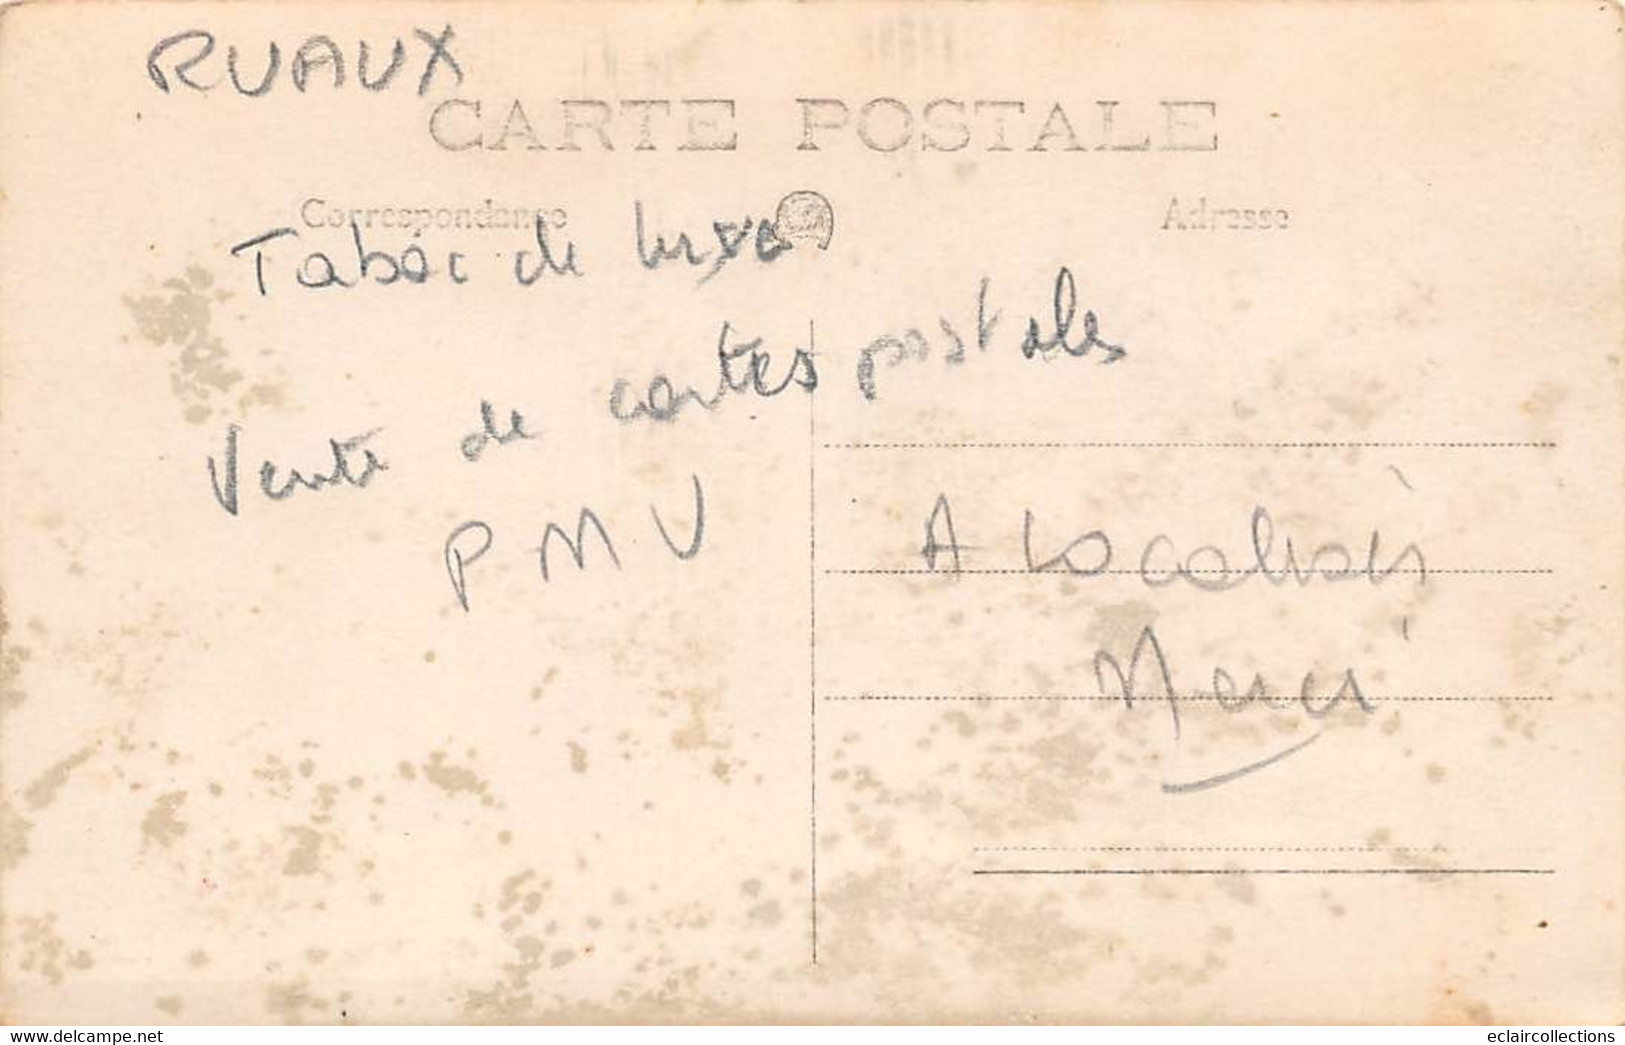 RUAUX
CARTE POSTALE
Correspondance
Adresse
Tabac de luxe
Vente de cartes postales
PMV
A Localiser
Merci
www.delcampe.net
eclaircollections